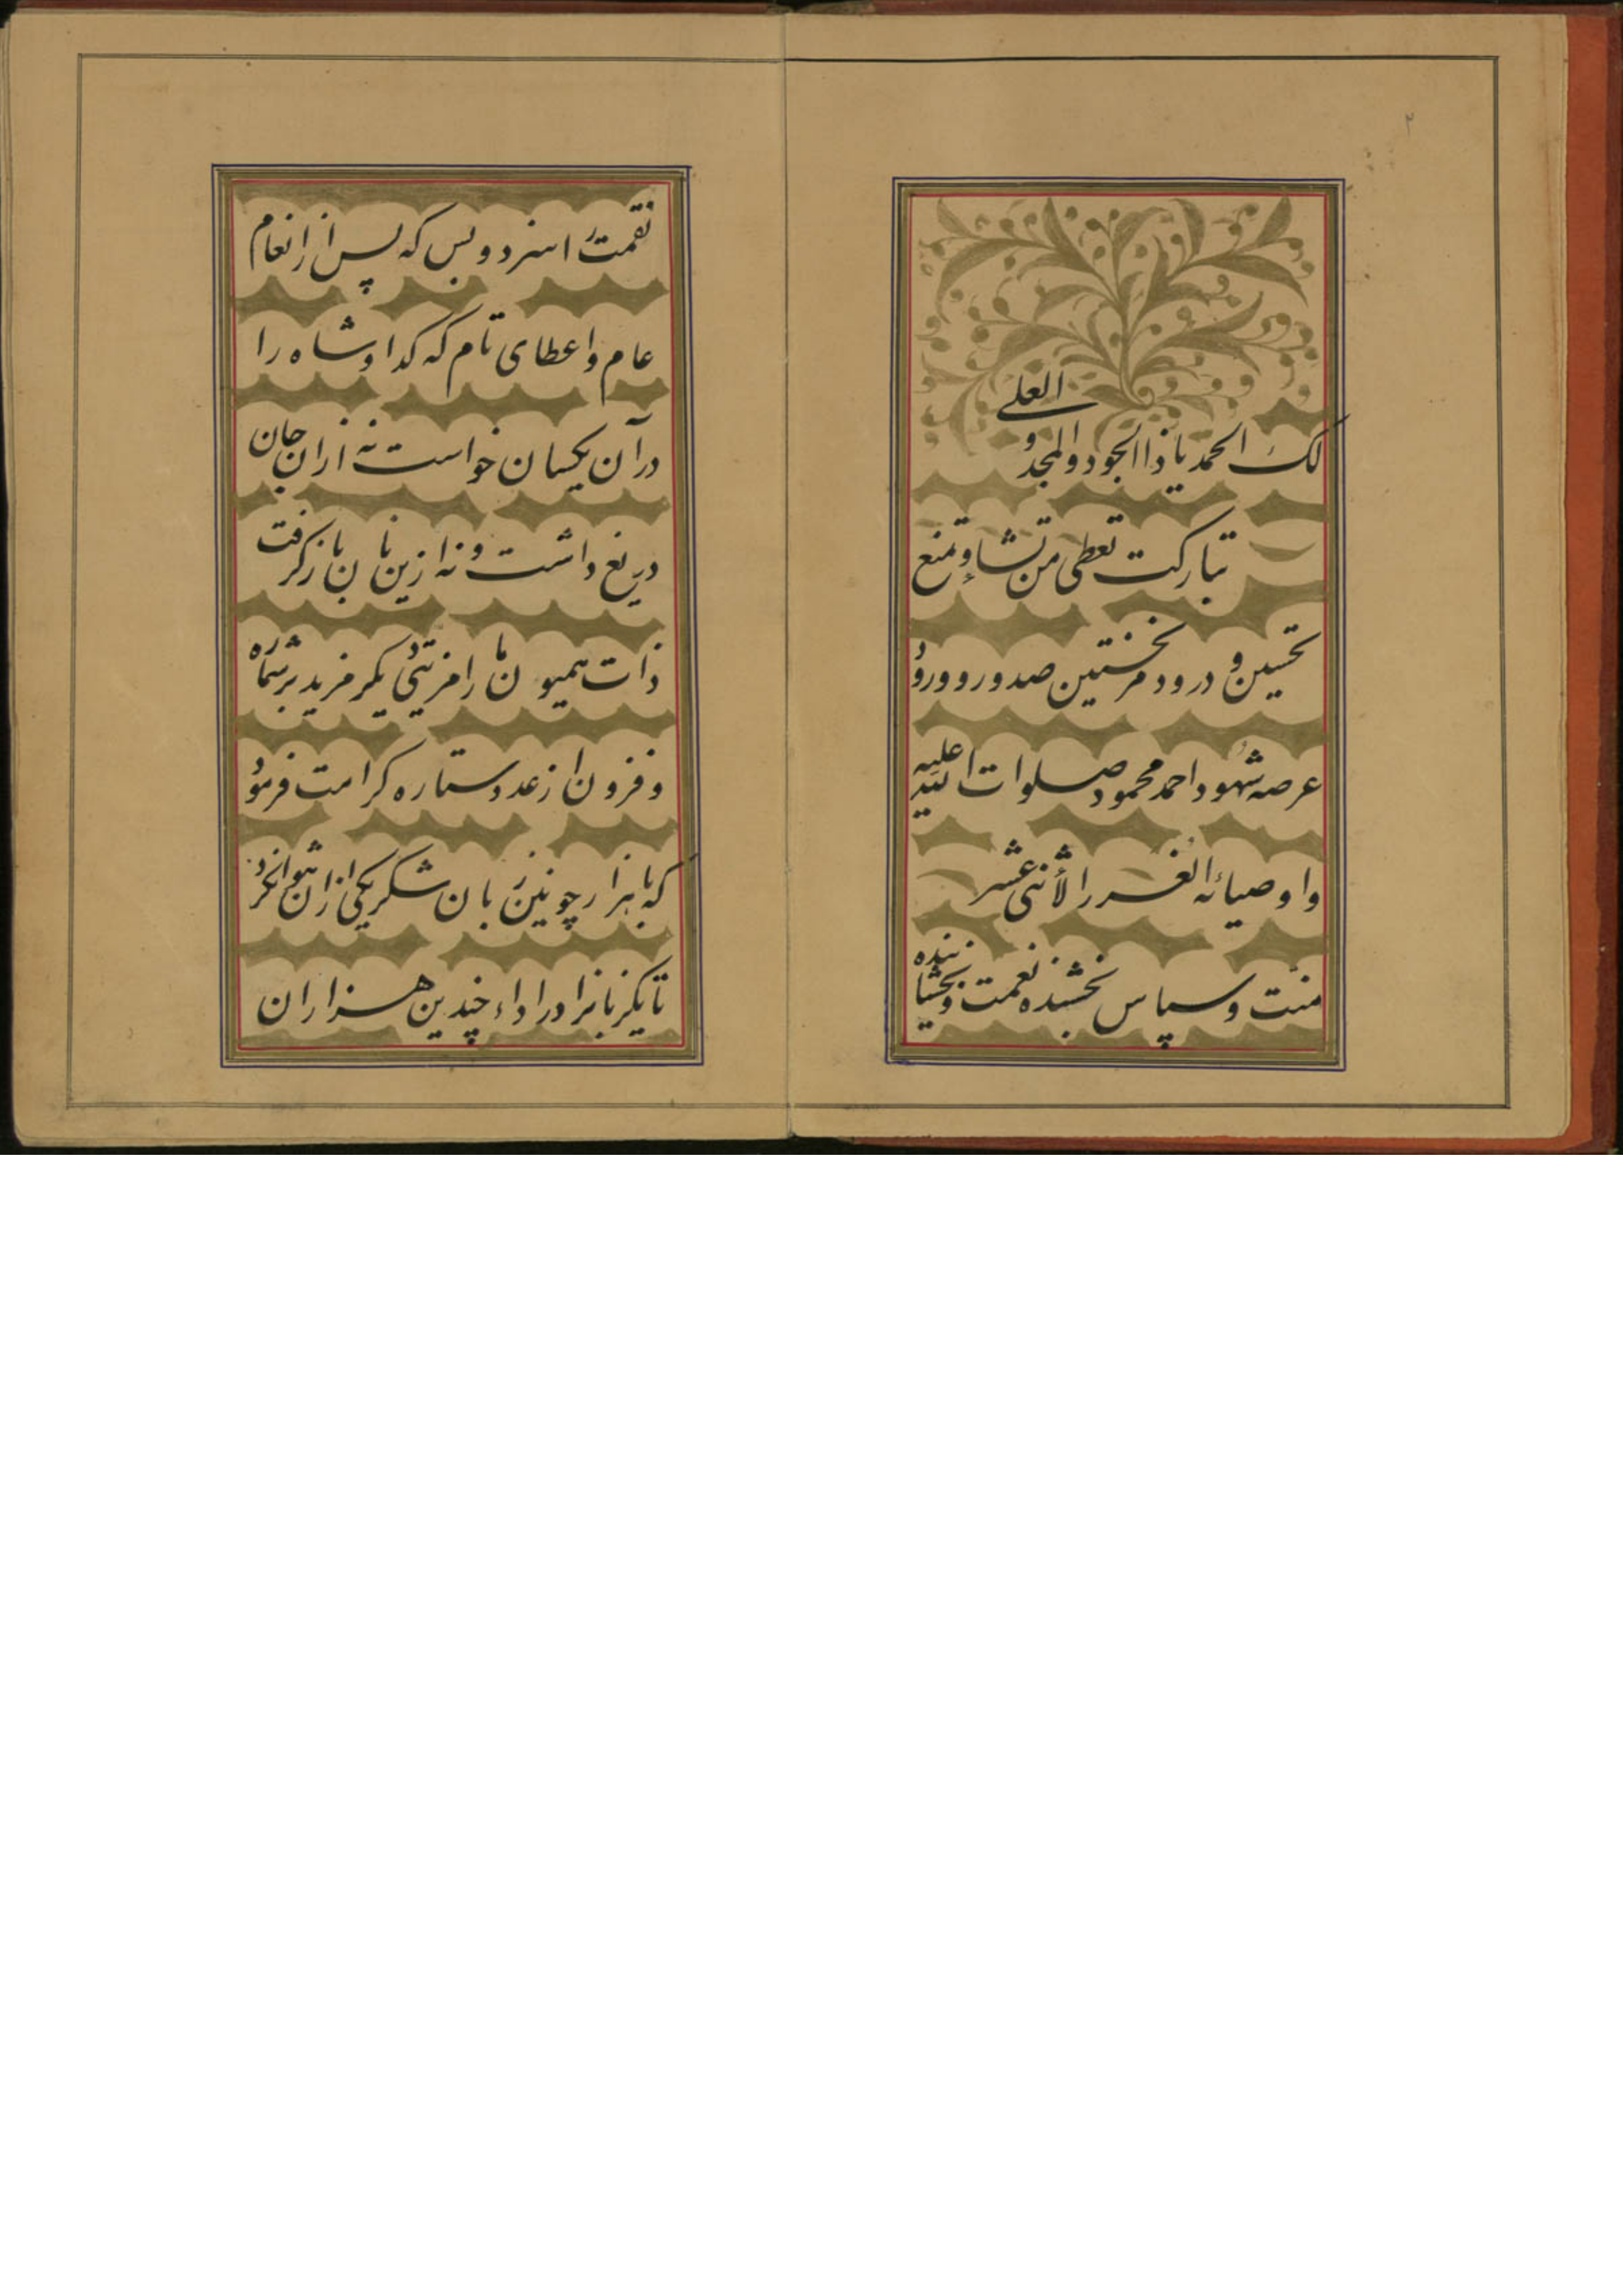 ۲
لک الحمد یا ذا الجود والمجد و العلی
تبارکت تعطی من تشاء و تمنع
تحسین و درود مر نخستین صدور و ورود
عرصه شهود احمد محمود صلوات الله علیه
و اوصیائه الغرر الأثنی عشر
منّت و سپاس بخشنده نعمت و بخشاینده
نقمت را سزد و بس که پس از انعام
عام و اعطای تام که کدا و شاه را
در آن یکسان خواست نه از ان جان
دریغ داشت و نه ازین نان باز کرفت
ذات همیون ما را مزیتی دیکر مزید بر شماره
و فزون از عدد ستاره کرامت فرمود
که با هزار چونین زبان شکر یکی از ان نتوان کرد
تا یکزبانرا در اداء چندین هزاران